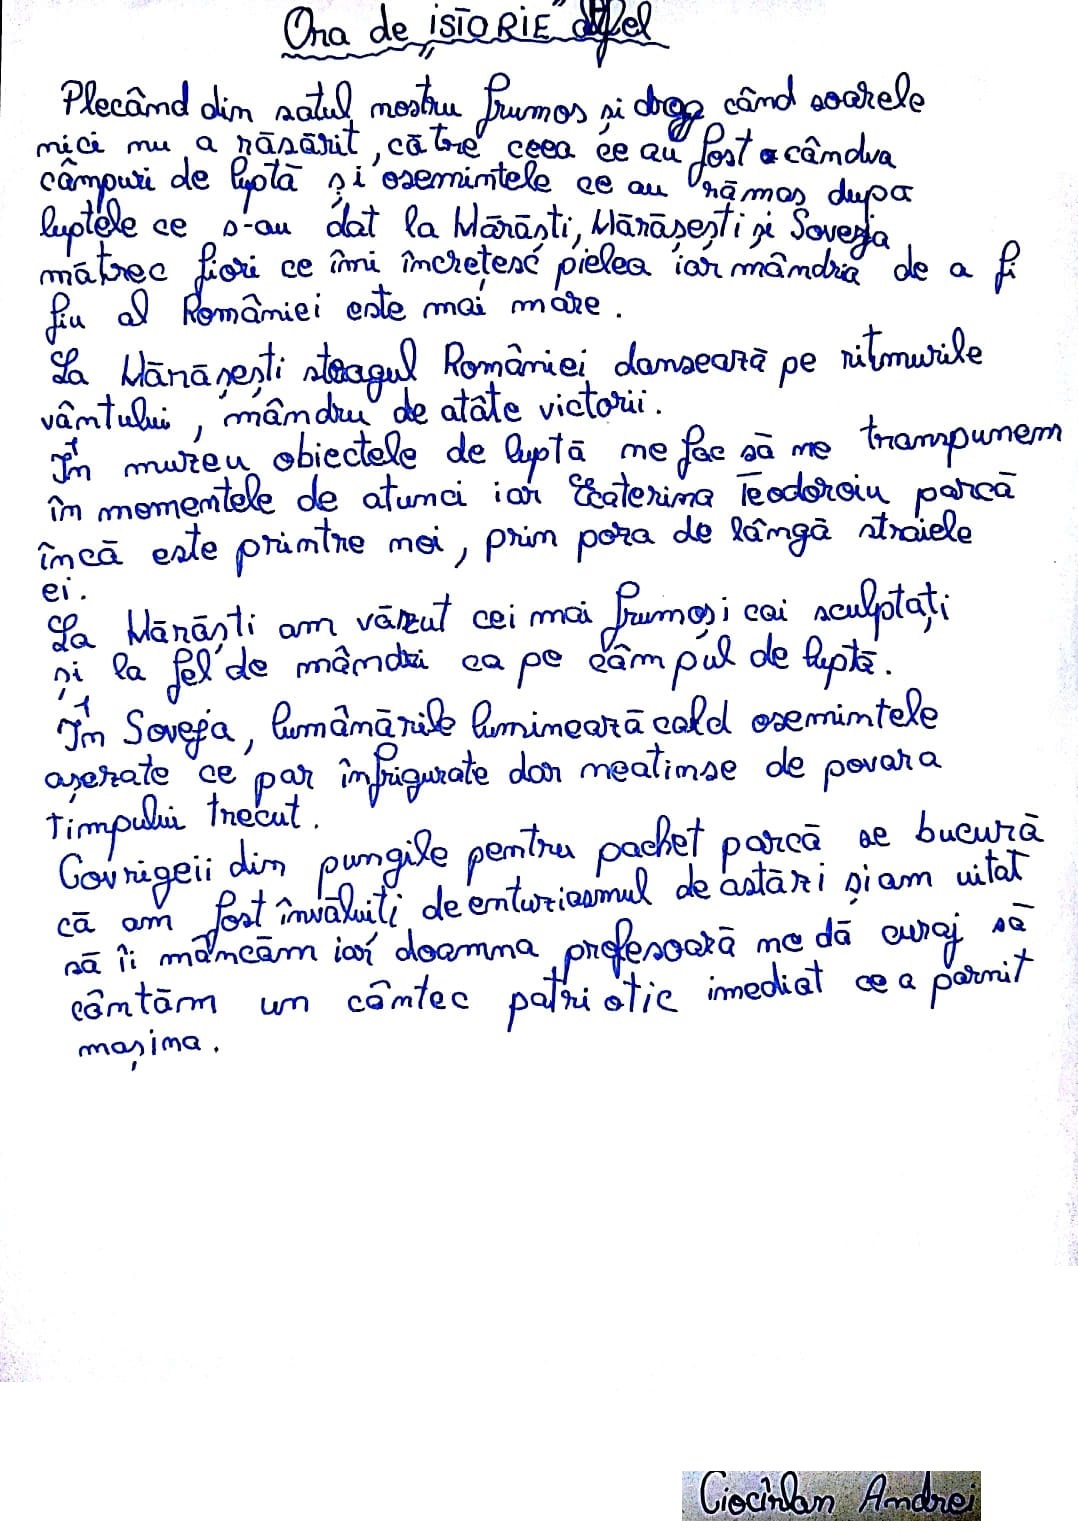 Ora de ISTORIE altfel
Plecând din satul nostru frumos și drag când soarele
nici nu a răsărit, către ceea ce au fost cândva
câmpuri de luptă și osemintele ce au rămas dupa
luptele ce s-au dat la Mărăști, Mărășești și Soveja
mătrec fiori ce îmi încrețesc pielea iar mândria de a fi
fiu al României este mai mare.
La Mărășești steagul României dansează pe ritmurile
vântului, mândru de atâte victorii.
În muzeu obiectele de luptă ne fac să ne transpunem
în momentele de atunci iar Ecaterina Teodoroiu parcă
încă este printre noi, prin poza de lângă straiele
ei.
La Mărăști am văzut cei mai frumoși cai sculptați
și la fel de mândri ca pe câmpul de luptă.
În Soveja, lumânările luminează cald osemintele
așezate ce par înfrigurate dar neatinse de povara
timpului trecut.
Covrigeii din pungile pentru pachet parcă se bucură
că am fost învăluiți de enturiasmul de astăzi și am uitat
să îi mâncăm iar doamna profesoară ne dă curaj să
cântăm un cântec patriotic imediat ce a pornit
mașina.
Ciocîrlan Andrei